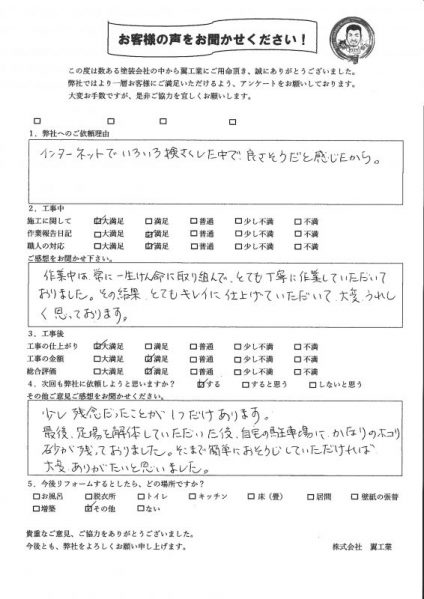 お客様の声をお聞かせください！
この度は数ある塗装会社の中から翼工業にご用命頂き、誠にありがとうございました。
弊社ではより一層お客様にご満足いただけるよう、アンケートをお願いしております。
大変お手数ですが、是非ご協力を宜しくお願い致します。
□ □ □ □
1．弊社へのご依頼理由
インターネットでいろいろ検さくした中で、良さそうだと感じたから。
2．工事中
施工に関して ☑大満足 □満足 □普通 □少し不満 □不満
作業報告日記 □大満足 ☑満足 □普通 □少し不満 □不満
職人の対応 ☑大満足 □満足 □普通 □少し不満 □不満
ご感想をお聞かせ下さい。
作業中は、常に一生けん命に取り組んで、とても丁寧に作業していただいて
おりました。その結果、とてもキレイに仕上げていただいて、大変、うれし
く思っております。
3．工事後
工事の仕上がり ☑大満足 □満足 □普通 □少し不満 □不満
工事の金額 □大満足 ☑満足 □普通 □少し不満 □不満
総合評価 □大満足 ☑満足 □普通 □少し不満 □不満
4．次回も弊社に依頼しようと思いますか？ ☑する □すると思う □しないと思う
その他ご意見ご感想をお聞かせください。
少し残念だったことが1つだけあります。
最後、足場を解体していただいた後、自宅の駐車場にて、かなりのホコリ
砂が残っておりました。そこまで簡単におそうじしていただければ
大変ありがたいと思いました。
5．今後リフォームするとしたら、どの場所ですか？
□お風呂 □脱衣所 □トイレ □キッチン □床（畳） □居間 □壁紙の張替
□増築 ☑その他 □ない
貴重なご意見、ご協力をありがとうございました。
今後とも、弊社をよろしくお願い申し上げます。
株式会社 翼工業